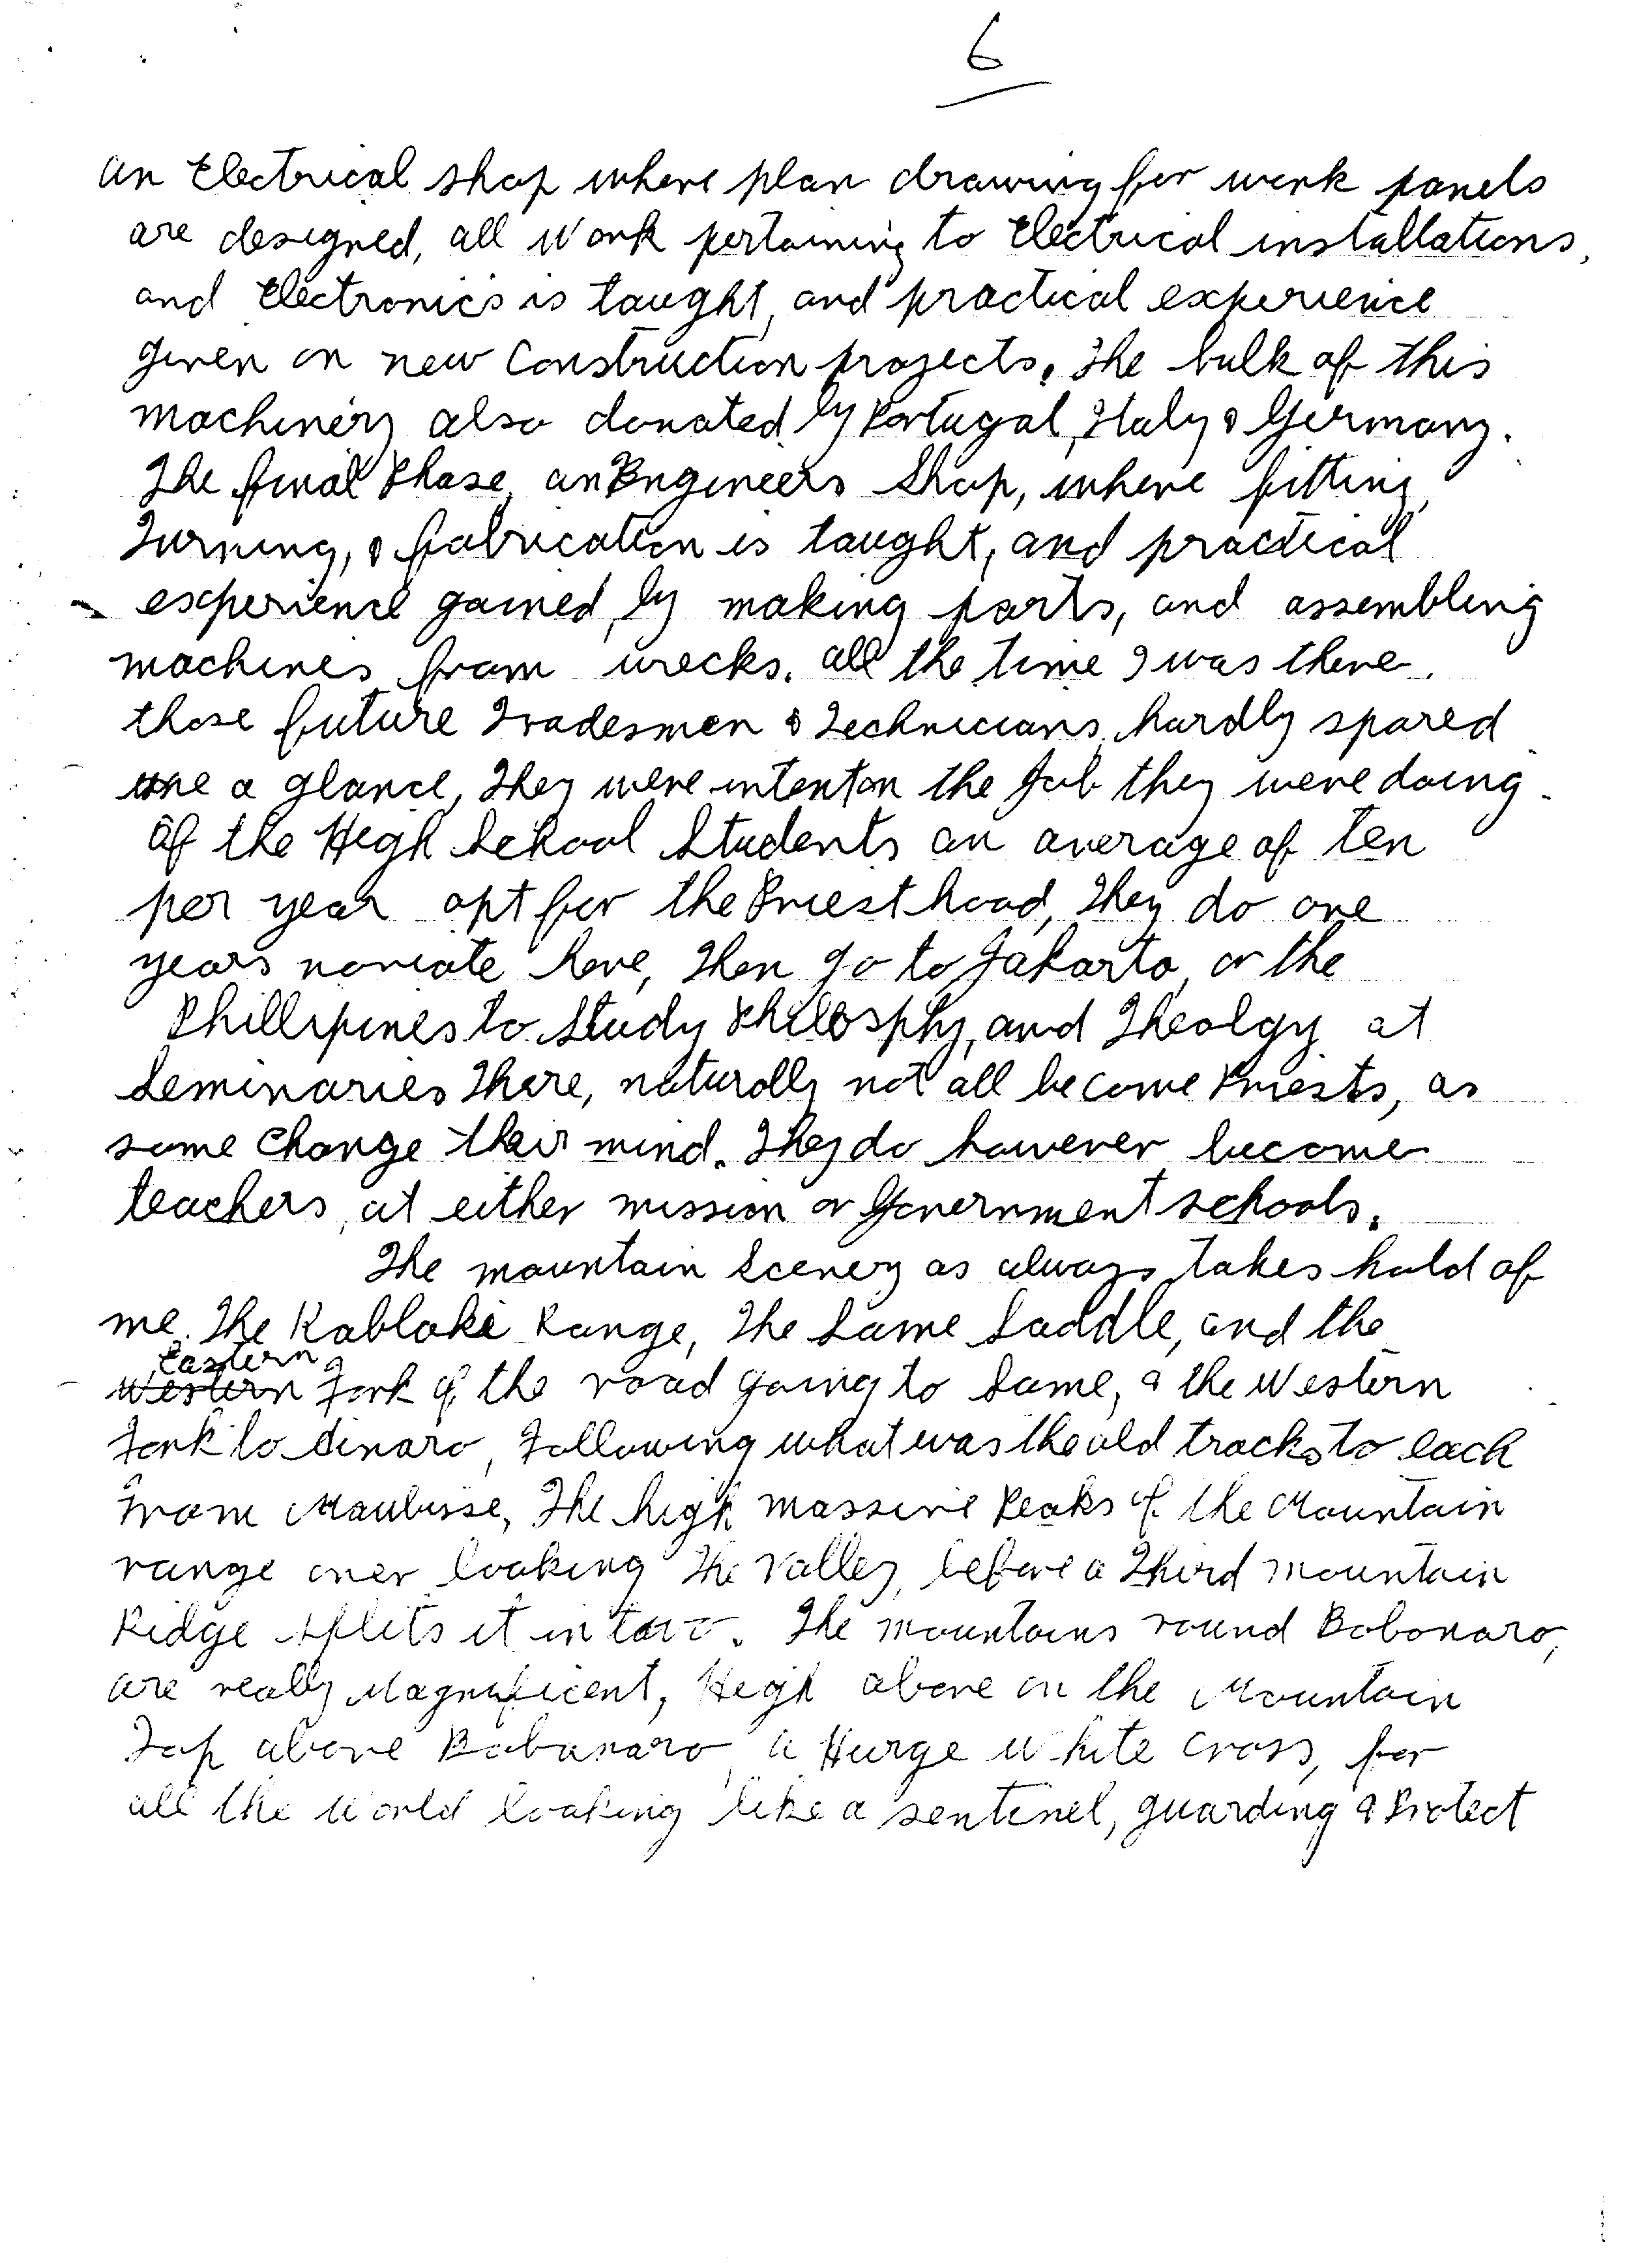 6
an Electrical shop where plan drawing for work panels
are designed, all work pertaining to Electrical installations,
and Electronics is taught, and practical experience
given on new Construction projects. The bulk of this
machinery also donated by Portugal, Italy & Germany.
The final Phase, an Engineers Shop, where fitting,
Turning, & fabrication is taught, and practical
experience gained, by making parts, and assembling
machines from wrecks. all the time I was there,
those future Tradesmen & Technicians, hardly spared
me a glance, They were intent on the Job they were doing.
Of the High School Students an average of ten
per year opt for the Priesthood, They do one
years noviate here, Then go to Jakarta, or the
Phillipines to Study Philosphy, and Theolgy at
Seminaries There, naturally not all become Priests, as
some Change their mind. They do however become
teachers, at either mission or Government schools.
The mountain Scenery as always, takes hold of
me. The Kablake Range, The Same Saddle, and the
Eastern
Western Fork of the road going to Same, & the Western
Fork to Ainaro, Following what was the old tracks to each
From Maubisse, The high massive Peaks of the Mountain
range over looking The Valley, before a Third mountain
Ridge splits it in two. The mountains round Bobonaro,
are really Magnificent, High above on the Mountain
Top above Bobonaro, a Hurge White Cross, for
all the World looking like a sentinel, guarding & Protect